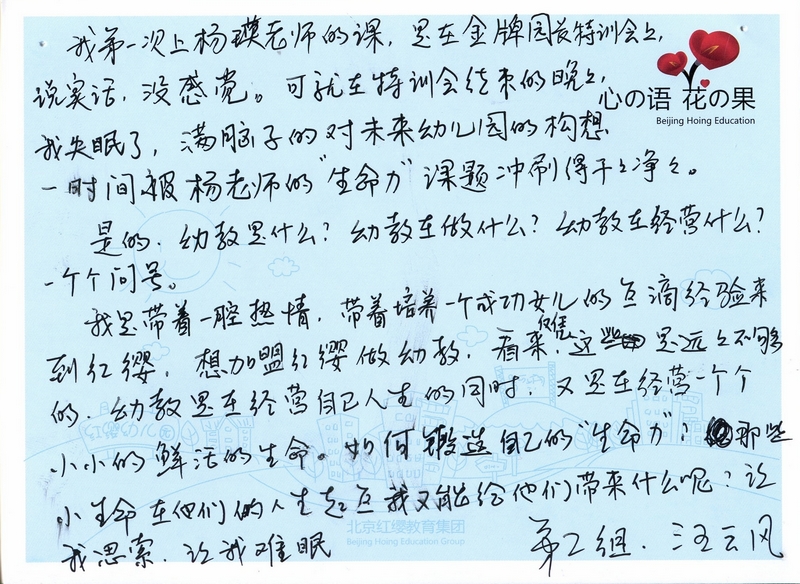 我第一次上杨瑛老师的课，是在金牌园长特训会上，
说实话，没感觉。可就在特训会结束的晚上，
心の语 花の果
Beijing Hoing Education
我失眠了，满脑子的对未来幼儿园的构想
一时间被杨老师的“生命力”课题冲刷得干干净净。
是的．幼教是什么？幼教在做什么？幼教在经营什么？
一个个问号。
我是带着一腔热情，带着培养一个成功女儿的点滴经验来
到红缨，想加盟红缨做幼教．看来，仅凭这些是远远不够
的．幼教是在经营自己人生的同时，又是在经营一个个
小小的鲜活的生命。如何锻造自己的“生命力”？那些
小生命在他们的人生起点我又能给他们带来什么呢？让
我思索．让我难眠
第2组．汪云风
北京红缨教育集团
Beijing Hoing Education Group